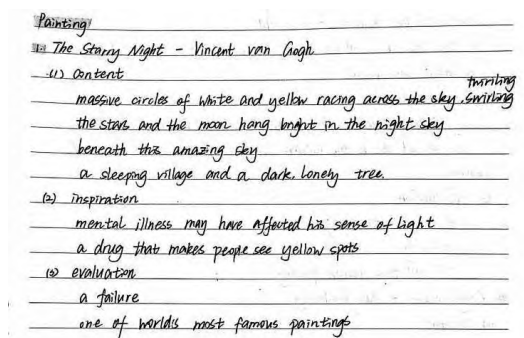 Painting
1. The Starry Night - Vincent van Gogh
(1) Content
twirling
massive circles of white and yellow racing across the sky. swirling
the stars and the moon hang bright in the night sky
beneath this amazing sky
a sleeping village and a dark, lonely tree.
(2) inspiration
mental illness may have affected his sense of light
a drug that makes people see yellow spots
(3) evaluation
a failure
one of world's most famous paintings